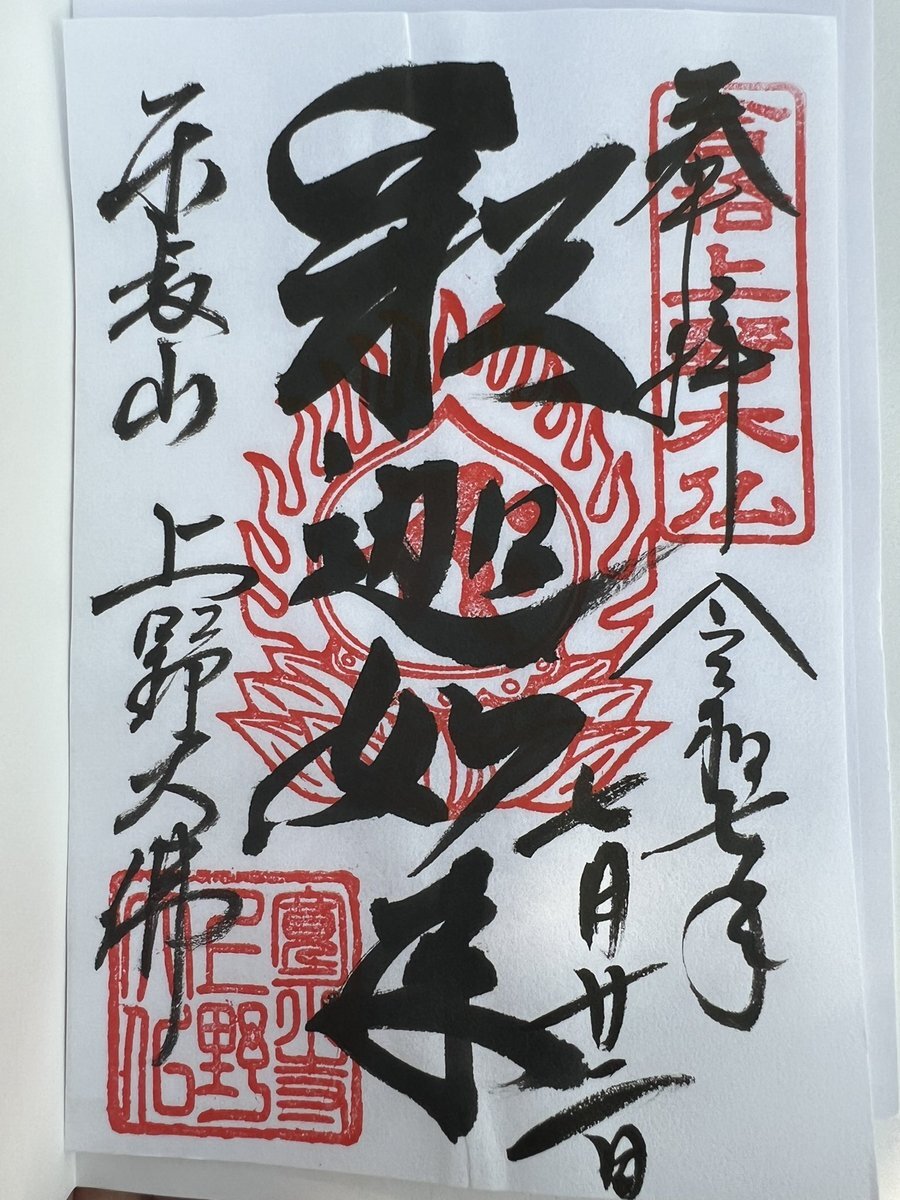 合格上野大仏
奉拝
令和七年
七月廿二日
釈迦如来
東叡山 上野大佛
寛永寺
上野
大仏